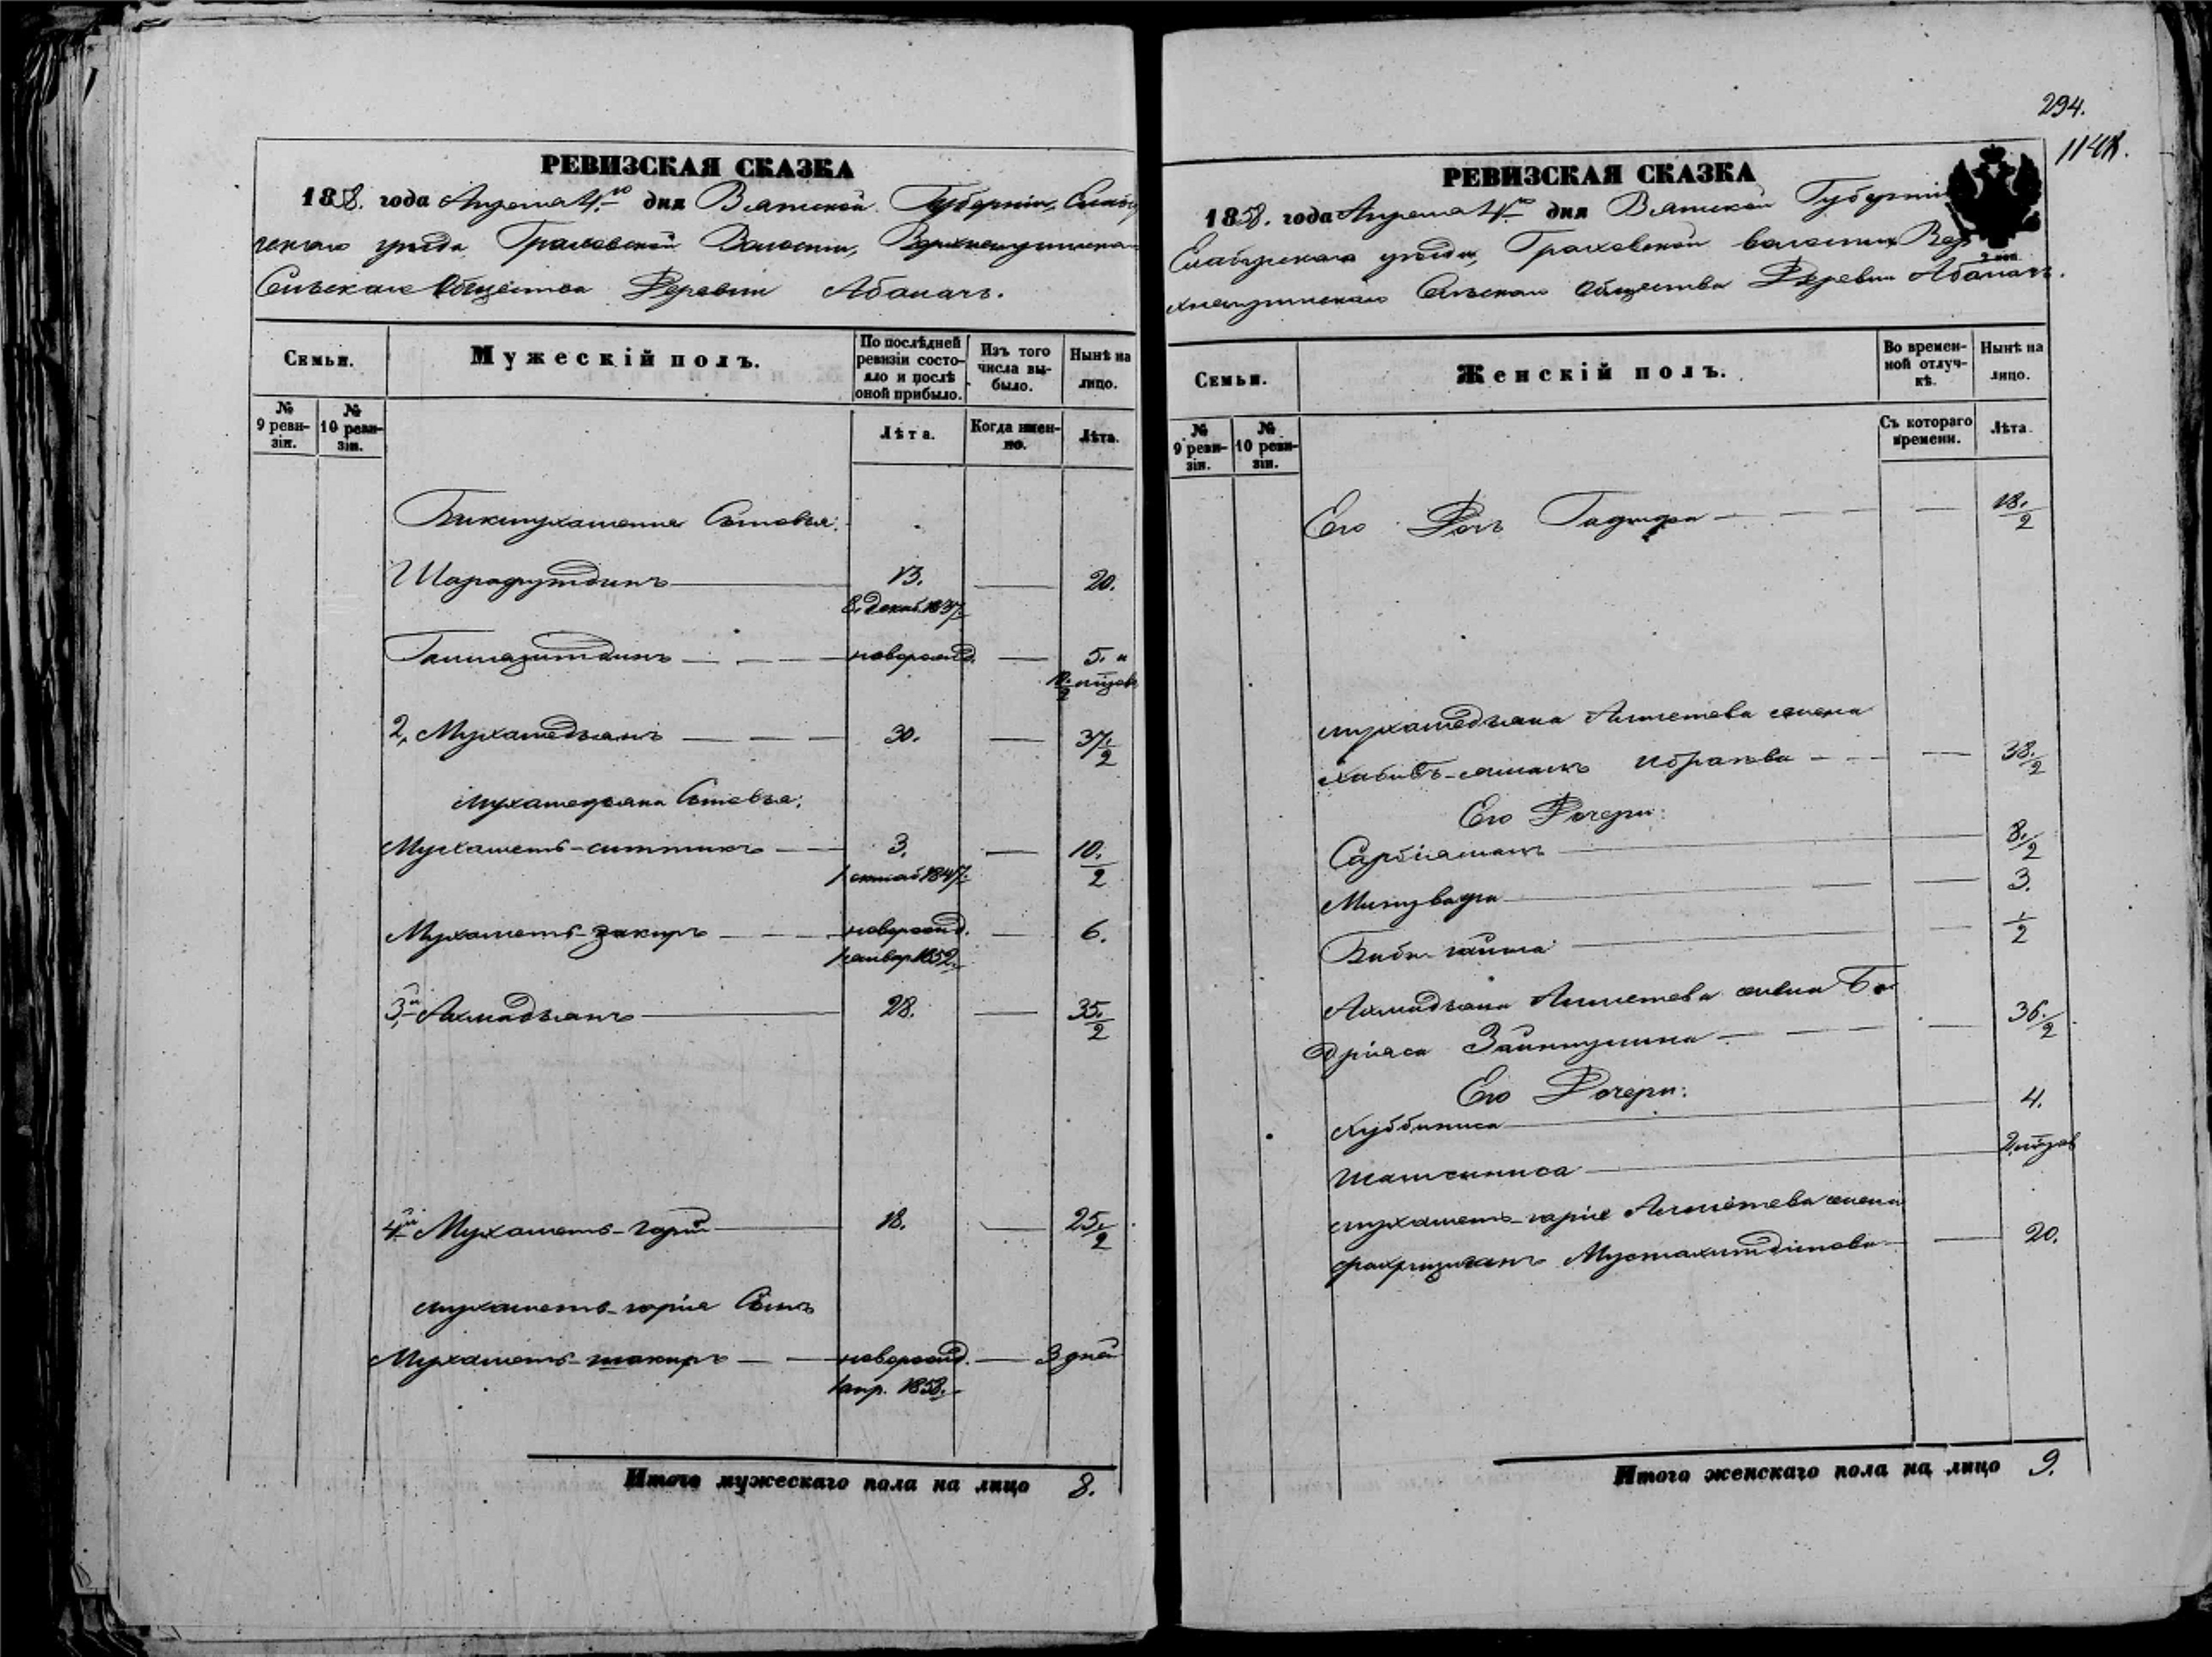 294.
1148.
РЕВИЗСКАЯ СКАЗКА
1858. года Апреля 4го дня Вятской Губернии, Елабу
скаго уезда, Граховской Волости,
Сельскаго Общества Деревни Абалачь.
Семьи.
Мужескій полъ.
По послѣдней ревизіи состояло и послѣ оной прибыло.
Изъ того числа выбыло.
Нынѣ на лицо.
№ 9 ревизіи.
№ 10 ревизіи.
Лѣта.
Когда именно.
Лѣта.
Бикмухаметя Сыновья:
Шарафутдинъ 13. 20.
8. декаб. 1837.
новорожд. 5. и
10 1/2 мѣсяц
2, Мухамедьянъ 30. 37 1/2
Мухамедьяна Сыновья:
Мухаметъ-ситтикъ 3. 10. 1/2
1 октяб 1847.
Мухаметъ-закиръ новорожд. 6.
1 январ 1852.
3й Ахмадьянъ 28. 35. 1/2
4й Мухаметъ-гарій 18. 25. 1/2
Мухаметъ-гарія Сынъ
Мухаметъ-шакиръ новорожд. 3 дней
1 апр. 1858.
Итого мужескаго пола на лицо 8.
РЕВИЗСКАЯ СКАЗКА
1858. года Апреля 4го дня Вятской Губерніи
Елабугскаго уезда, Граховской волости, Вер
Сельскаго Общества Деревни Абалачь.
Семьи.
Женскій полъ.
Во временной отлучкѣ.
Нынѣ на лицо.
№ 9 ревизіи.
№ 10 ревизіи.
Съ котораго времени.
Лѣта.
Его Дочь 18. 1/2
Мухамедьяна Ахметева жена
38. 1/2
Его Дочери:
Сарбіямалъ 8. 1/2
Минзвафа 3.
Биби-гайша 1/2
Ахмадьяна Ахметева жена Ба
дріяса 36. 1/2
Его Дочери:
Хуббиниса 4.
Шамсиниса
Мухаметъ-гарія Ахметева жена
Фахризиганъ Мустахитдинова 20.
Итого женскаго пола на лицо 9.